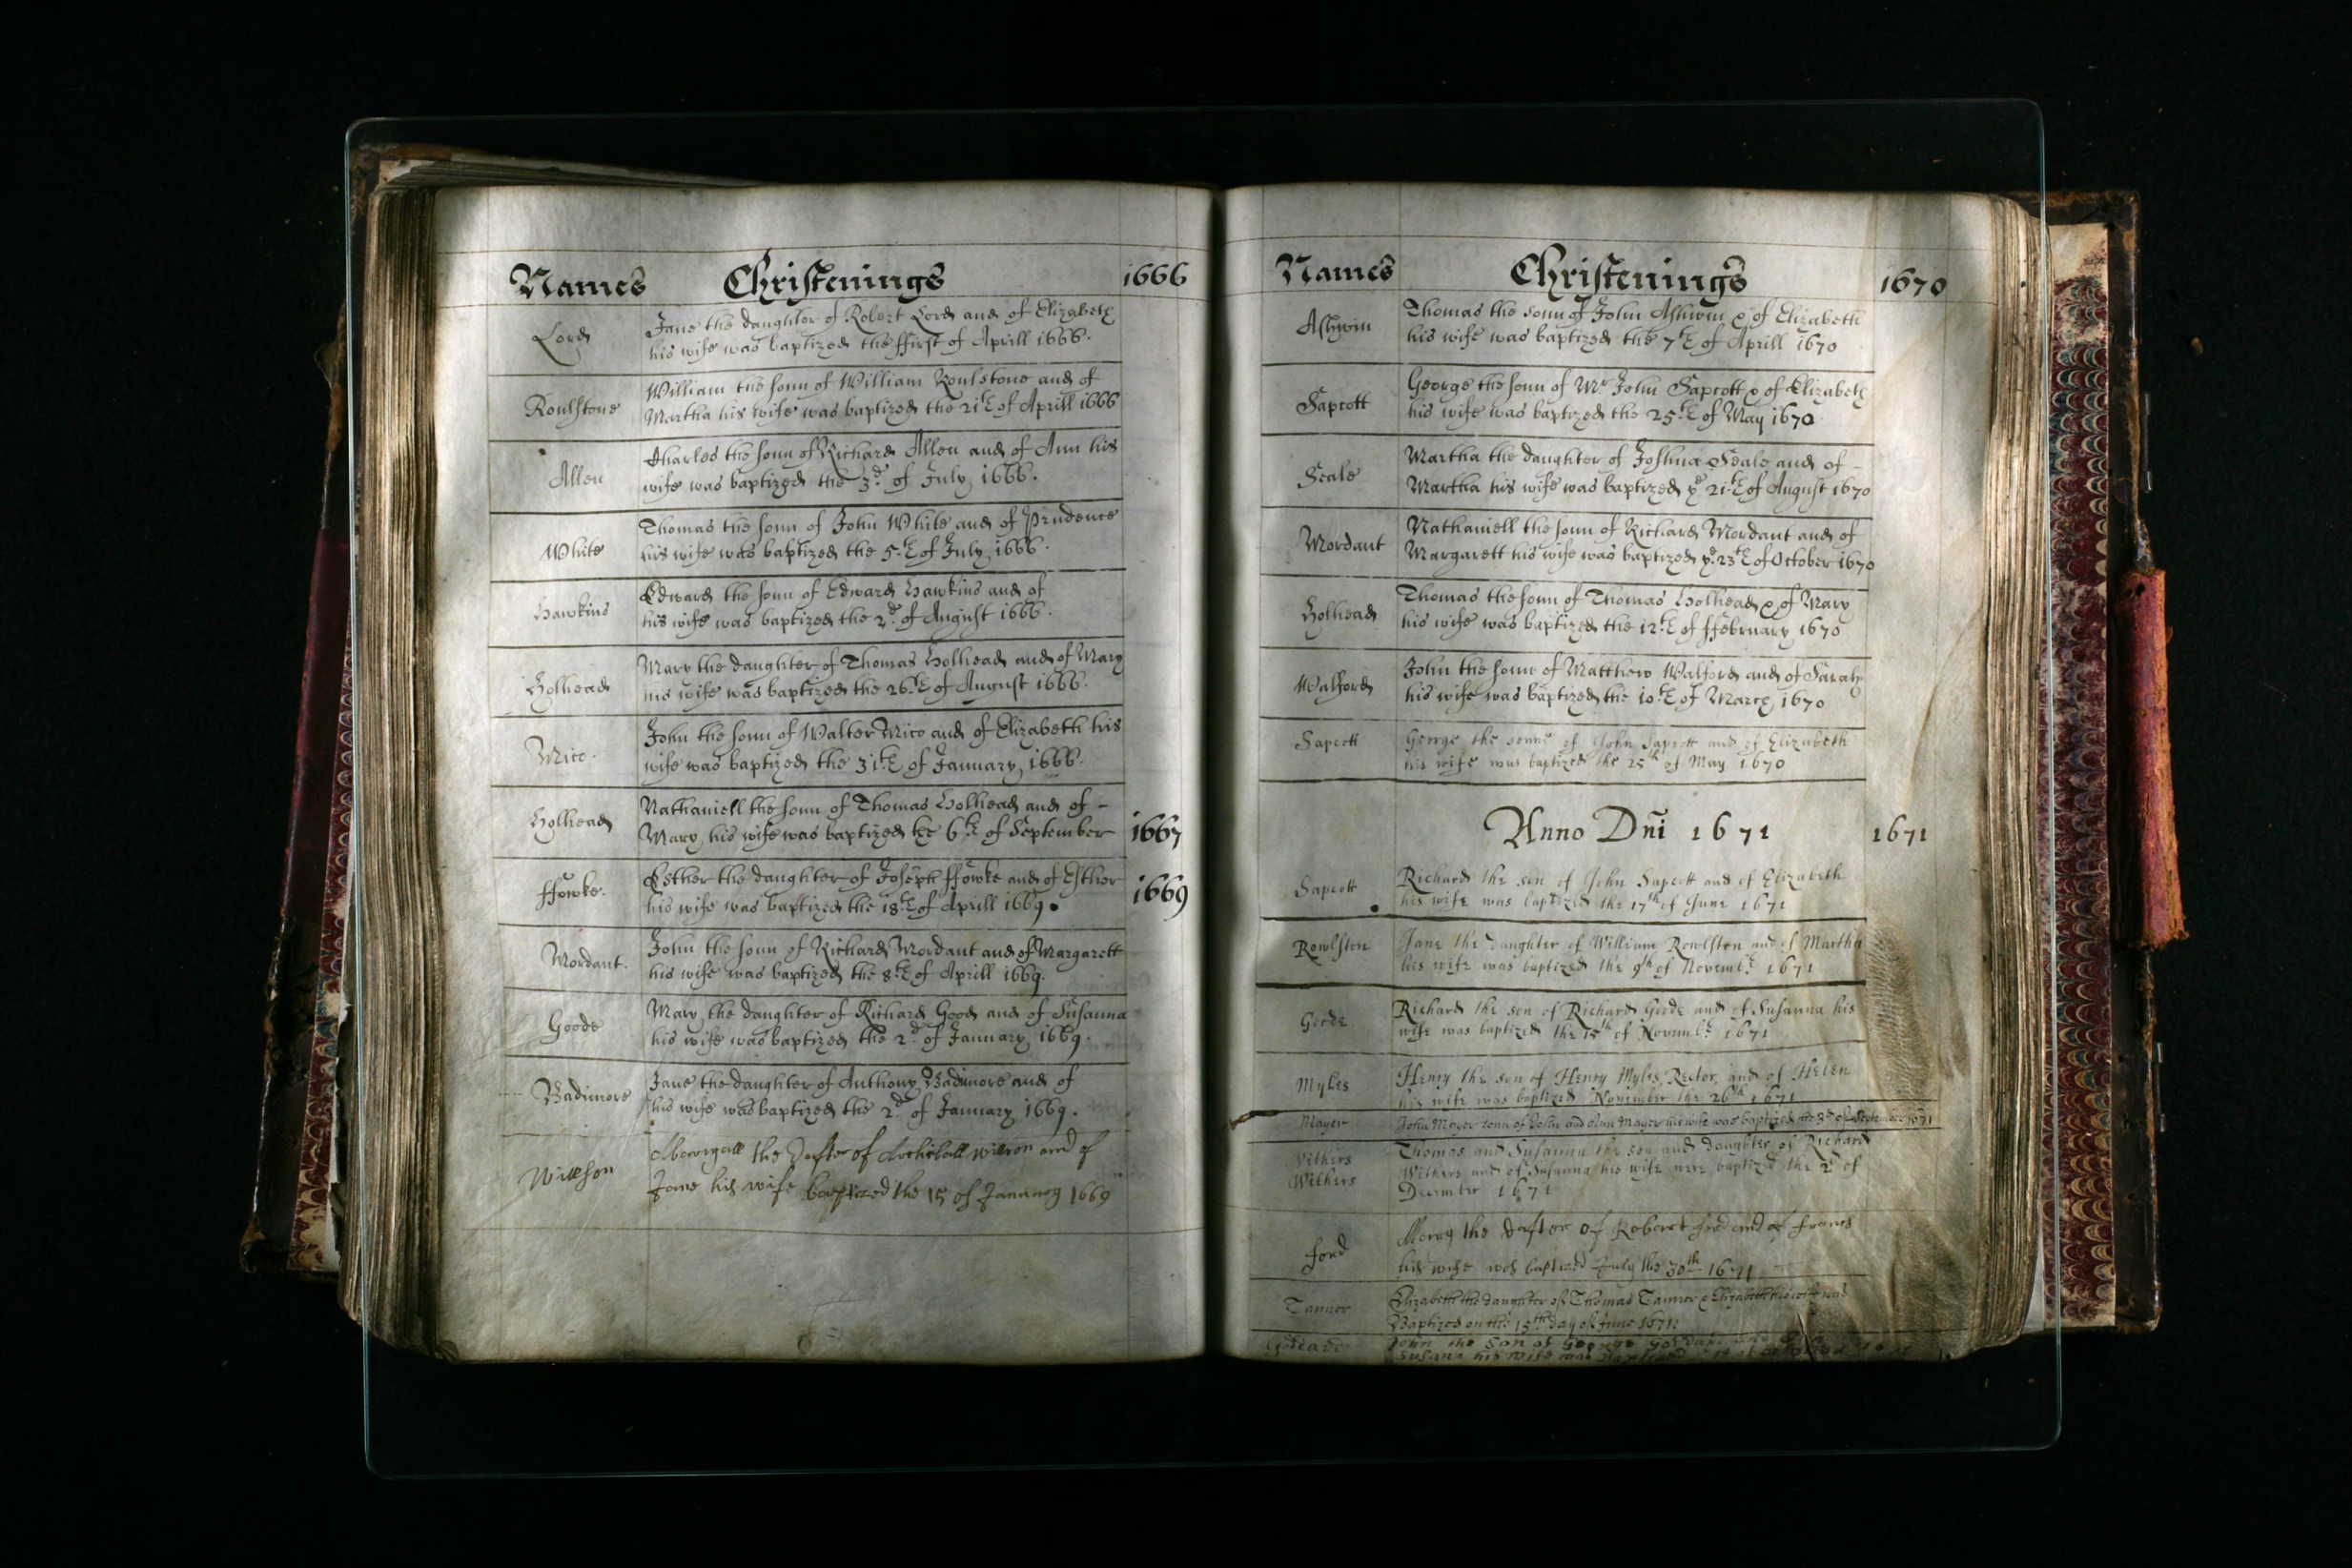 Names Christenings 1666
Lord
Jane the daughter of Robert Lord and of Elizabeth
his wife was baptized the ffirst of Aprill 1666.
Roulstone
William the sonn of William Roulstone and of
Martha his wife was baptized the 21th of Aprill 1666
Allen
Charles the sonn of Richard Allen and of Ann his
wife was baptized the 3d. of July 1666.
White
Thomas the sonn of John White and of Prudence
his wife was baptized the 5th of July 1666.
Hawkins
Edward the sonn of Edward Hawkins and of
his wife was baptized the 2d. of August 1666.
Holhead
Mary the daughter of Thomas Holhead and of Mary
his wife was baptized the 26th of August 1666.
Mico.
John the sonn of Walter Mico and of Elizabeth his
wife was baptized the 31th of January 1666.
Holhead
Nathaniell the sonn of Thomas Holhead and of -
Mary his wife was baptized the 6th of September 1667
ffowke.
Esther the daughter of Joseph ffowke and of Esther
his wife was baptized the 18th of Aprill 1669. 1669
Mordant.
John the sonn of Richard Mordant and of Margarett
his wife was baptized the 8th of Aprill 1669.
Goode
Mary the daughter of Richard Good and of Susanna
his wife was baptized the 2d. of January 1669.
Badimore
Jane the daughter of Anthony Badimore and of
his wife was baptized the 2d. of January 1669.
Willson
the dafter of willson and of
Jane his wife baptized the 15 of January 1669
Names Christenings 1670
Ashwin
Thomas the sonn of John Ashwin & of Elizabeth
his wife was baptized the 7th of Aprill 1670
Sapcott
George the sonn of Mr John Sapcott & of Elizabeth
his wife was baptized the 25th of May 1670.
Seale
Martha the daughter of Joshua Seale and of -
Martha his wife was baptized ye 21th of August 1670
Mordant
Nathaniell the sonn of Richard Mordant and of
Margarett his wife was baptized ye 23th of October 1670
Holhead
Thomas the sonn of Thomas Holhead & of Mary
his wife was baptized the 12th of ffebruary 1670
Walford
John the sonn of Matthew Walford and of Sarah
his wife was baptized the 10th of March 1670
Sapcott
George the sonne of John Sapcott and of Elizabeth
his wife was baptized the 25th of May 1670
Anno Dñi 1671 1671
Sapcott
Richard the son of John Sapcott and of Elizabeth
his wife was baptized the 17th of June 1671
Rowlston
Jane the daughter of William Rowlston and of Martha
his wife was baptized the 9th of Novembr 1671
Goode
Richard the son of Richard Goode and of Susanna his
wife was baptized the 15th of Novembr 1671
Myles
Henry the son of Henry Myles Rector and of Helen
his wife was baptized November the 26th 1671
Mayer
John Mayer sonn of John and Ann Mayer his wife was baptized the 3d of September 1671
Withers
Withers
Thomas and Susanna the son and daughter of Richard
Withers and of Susanna his wife were baptized the 2d of
December 1671
ford
Marey the dafter of Robert ford and of frances
his wife was baptized July the 30th 1671
Tanner
Elizabeth the daughter of Thomas Tanner & Elizabeth his wife was
Baptized on the 15th day of June 1671:
John the Son of George
Susana his wife was baptized